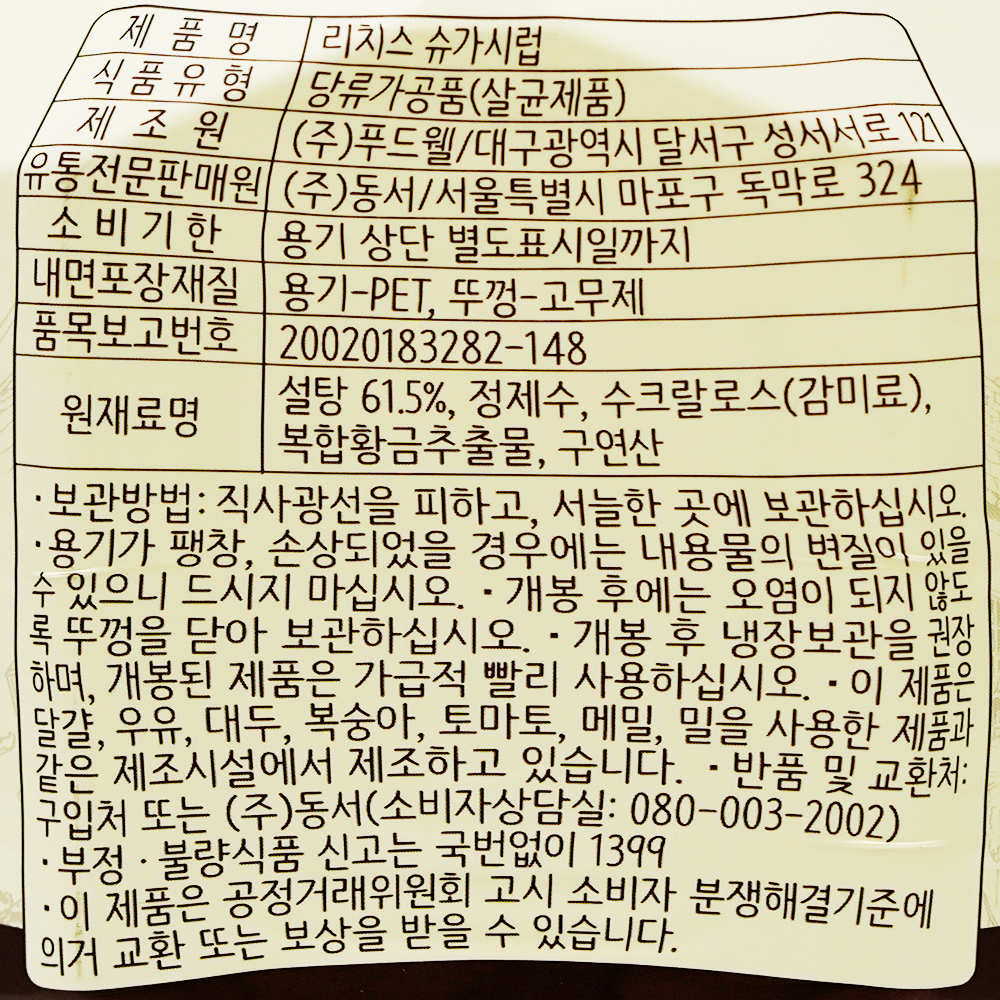 제 품 명 리치스 슈가시럽
식 품 유 형 당류가공품(살균제품)
제 조 원 (주)푸드웰/대구광역시 달서구 성서서로 121
유통전문판매원 (주)동서/서울특별시 마포구 독막로 324
소 비 기 한 용기 상단 별도표시일까지
내면포장재질 용기-PET, 뚜껑-고무제
품목보고번호 20020183282-148
원재료명 설탕 61.5%, 정제수, 수크랄로스(감미료),
복합황금추출물, 구연산
·보관방법: 직사광선을 피하고, 서늘한 곳에 보관하십시오.
·용기가 팽창, 손상되었을 경우에는 내용물의 변질이 있을
수 있으니 드시지 마십시오. · 개봉 후에는 오염이 되지 않도
록 뚜껑을 닫아 보관하십시오. · 개봉 후 냉장보관을 권장
하며, 개봉된 제품은 가급적 빨리 사용하십시오. · 이 제품은
달걀, 우유, 대두, 복숭아, 토마토, 메밀, 밀을 사용한 제품과
같은 제조시설에서 제조하고 있습니다. · 반품 및 교환처:
구입처 또는 (주)동서(소비자상담실: 080-003-2002)
·부정 · 불량식품 신고는 국번없이 1399
·이 제품은 공정거래위원회 고시 소비자 분쟁해결기준에
의거 교환 또는 보상을 받을 수 있습니다.